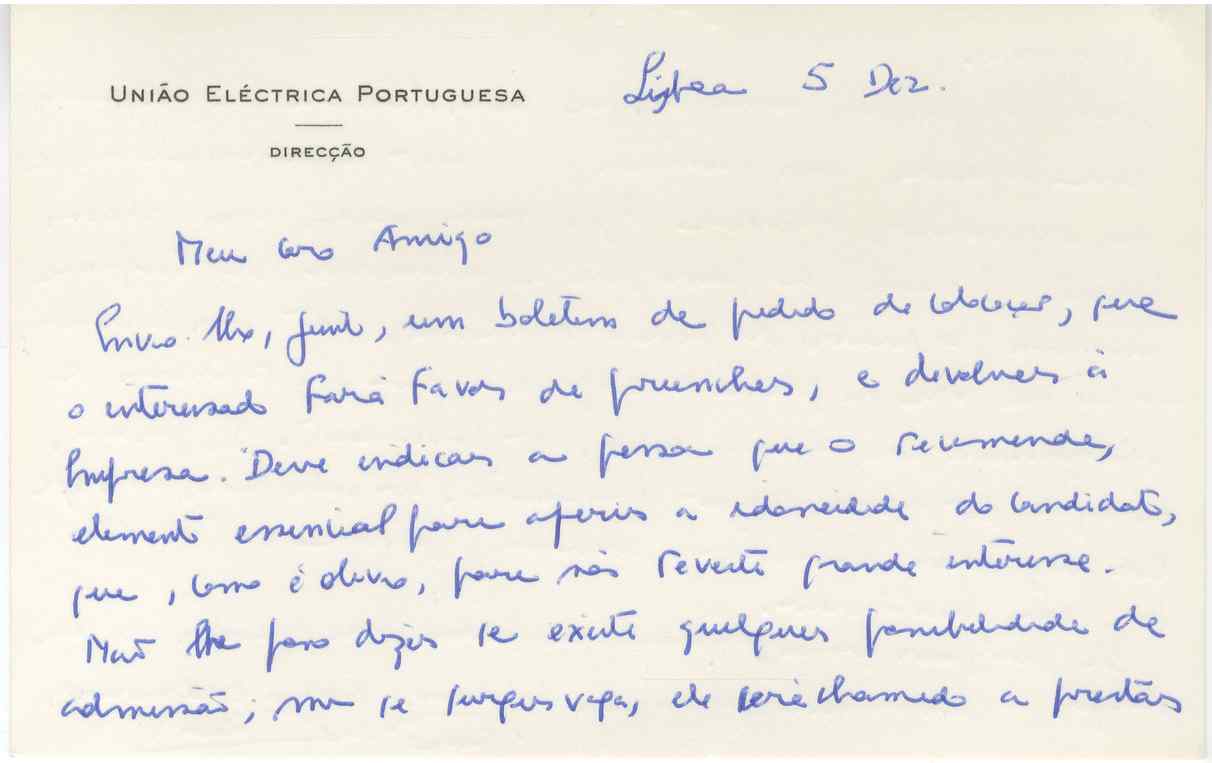 UNIÃO ELÉCTRICA PORTUGUESA
DIRECÇÃO
Lisboa 5 Dez.
Meu caro Amigo
Envio-lhe, junto, um boletim de pedido de colocação, que
o interessado fará favor de preencher, e devolver à
Empresa. Deve indicar a pessoa que o recomenda,
elemento essencial para aferir a idoneidade do candidato,
que, como é óbvio, para nós reveste grande interesse.
Não lhe posso dizer se existe qualquer possibilidade de
admissão; mas se surgir vaga, ele será chamado a prestar